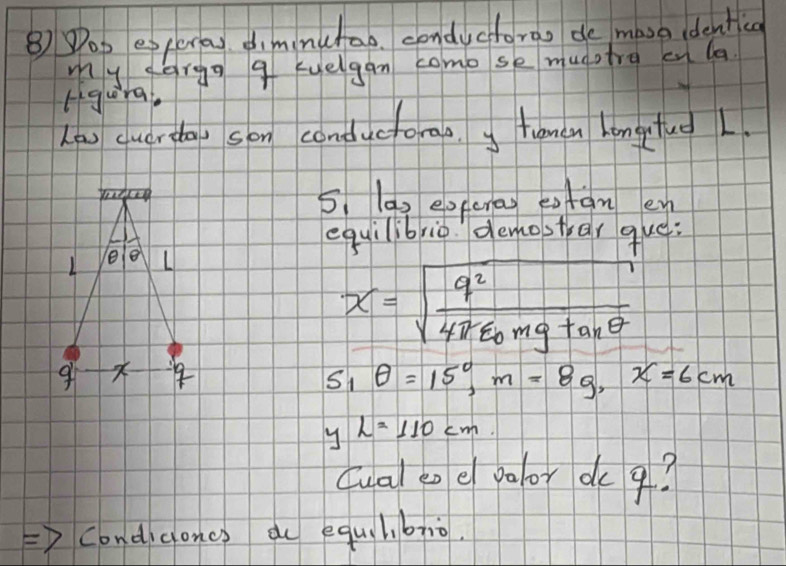 8) Dos esferas diminutas conductoras de masa identica
m y carga q cuelgan como se muestra en la
figura.
Las cuerdas son conductoras, y tienen longitud L.
Si las esferas están en
equilibrio. demostrar que:
θ θ
L L
x = √(q² / 4πε₀ mg tan θ)
q x q
Si θ = 15°, m = 8g, x = 6cm
y L = 110 cm.
Cual es el valor de q?
=> Condiciones de equilibrio.